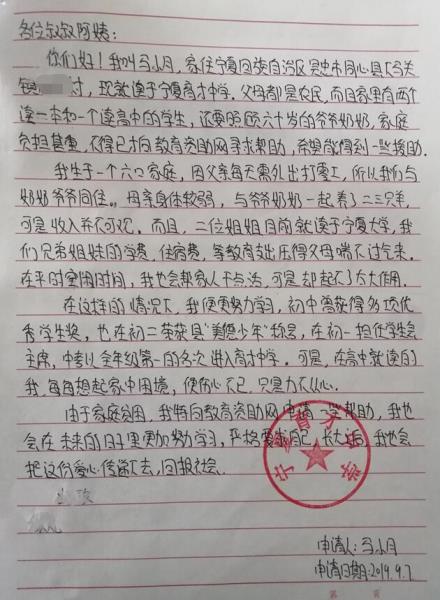 各位叔叔阿姨：
你们好！我叫马小月，家住宁夏回族自治区吴忠市同心县下马关
镇 村，现就读于宁夏育才中学。父母都是农民，而且家里有两个
读一本和一个读高中的学生，还要照顾六十岁的爷爷奶奶，家庭
负担甚重，不得已才向教育资助网寻求帮助，希望能得到一些援助。
我生于一个六口家庭，因父亲每天需外出打零工，所以我们与
奶奶爷爷同住。母亲身体较弱，与爷爷奶奶一起养了二三只羊，
可是收入并不可观。而且，二位姐姐目前就读于宁夏大学，我
们兄弟姐妹的学费，住宿费，等教育支出压得父母喘不过气来。
在平时空闲时间，我也会帮家人干点活，可是却起不了太大作用。
在这样的情况下，我便更努力学习，初中曾获得多项优
秀学生奖，也在初二荣获县“美德少年”称号，在初一担任学生会
主席，中考以全年级第一的名次进入育才中学。可是，在高中就读的
我，每每想起家中困境，便伤心不已，只是力不从心。
由于家庭贫困，我特向教育资助网申请 帮助，我也
会在未来的日子里更加努力学习，严格要求自己，长大后，我也会
把这份爱心传递下去，回报社会。
宁夏育才中学
申请人：马小月
申请日期：2019.9.7
第 页